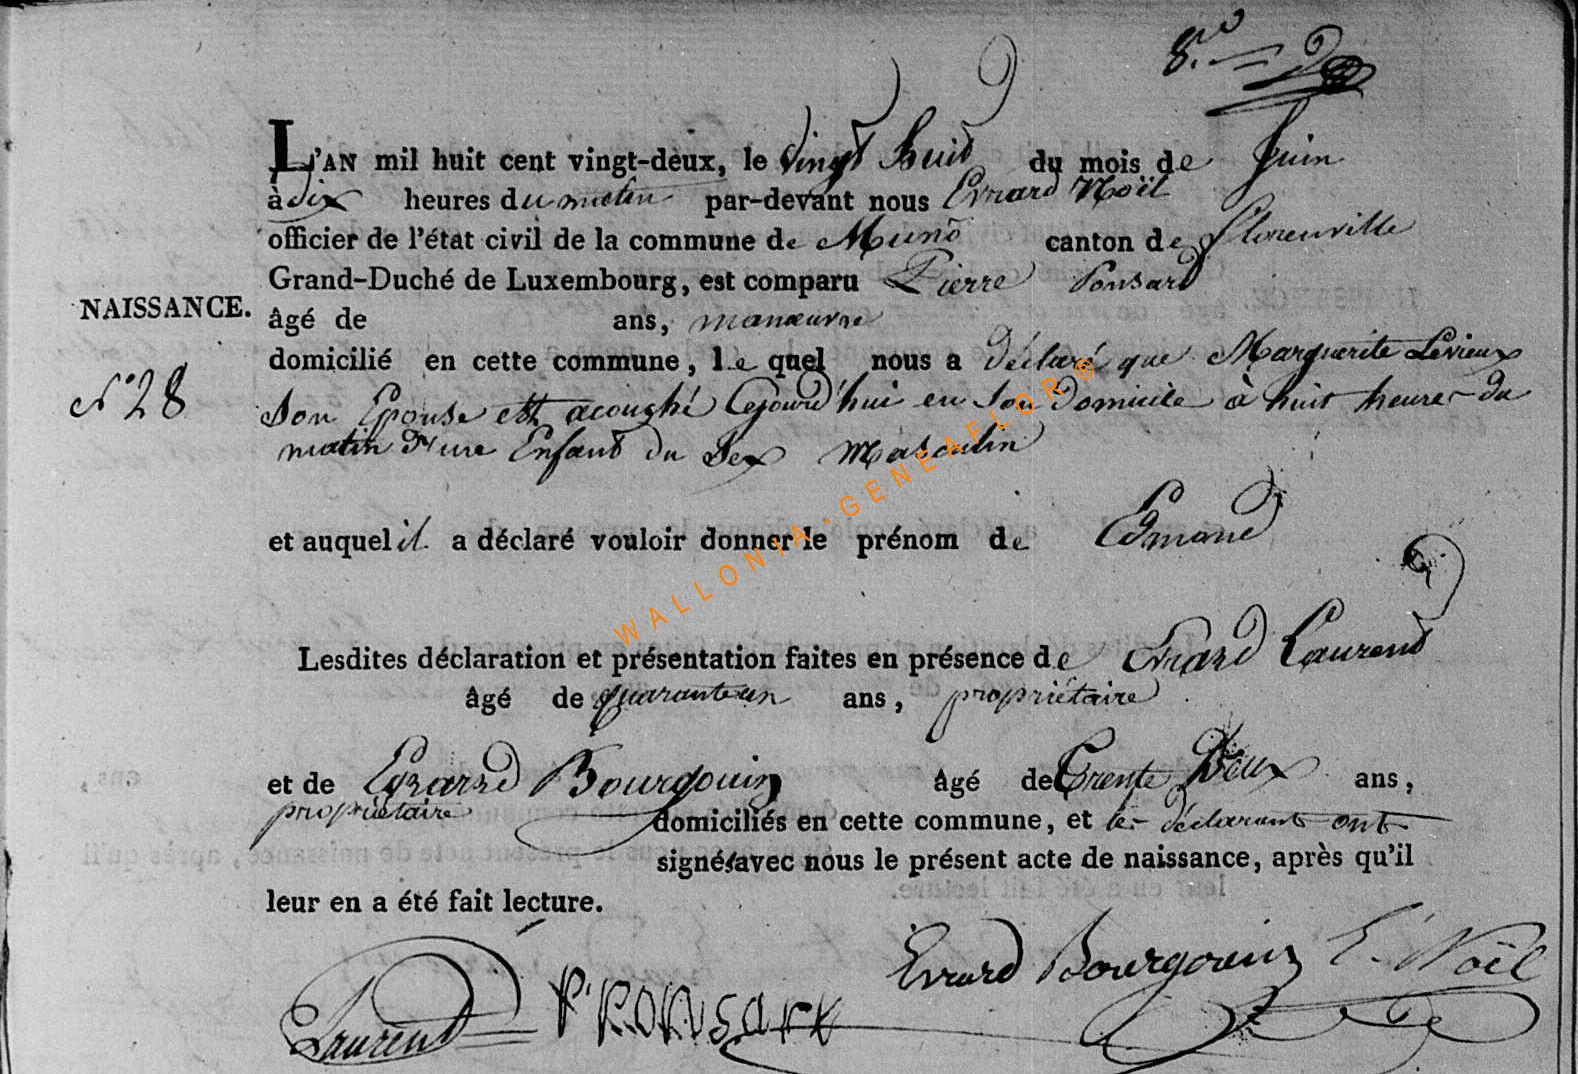 L'AN mil huit cent vingt-deux, le vingt huit du mois de Juin
à dix heures du matin par-devant nous Evrard Noël
officier de l'état civil de la commune de Muno canton de florenville
Grand-Duché de Luxembourg, est comparu Pierre Ponsard
NAISSANCE.
âgé de ans, manœuvre
domicilié en cette commune, le quel nous a déclaré que Marguerite Levieux
N° 28
Son Epouse est acouché Cejourd'hui en Son domicile à huit heures du
matin d'une Enfant du Sex Masculin
et auquel il a déclaré vouloir donner le prénom de Edmond
Lesdites déclaration et présentation faites en présence de Evrard Laurend
âgé de quarante un ans, propriétaire
et de Evrard Bourgouin âgé de Trente Deux ans,
propriétaire
domiciliés en cette commune, et les déclarants ont
signés avec nous le présent acte de naissance, après qu'il
leur en a été fait lecture.
Evrard Bourgouin E. Noël
Laurend P PONSARD
WALLONIA-GENEAFLORE